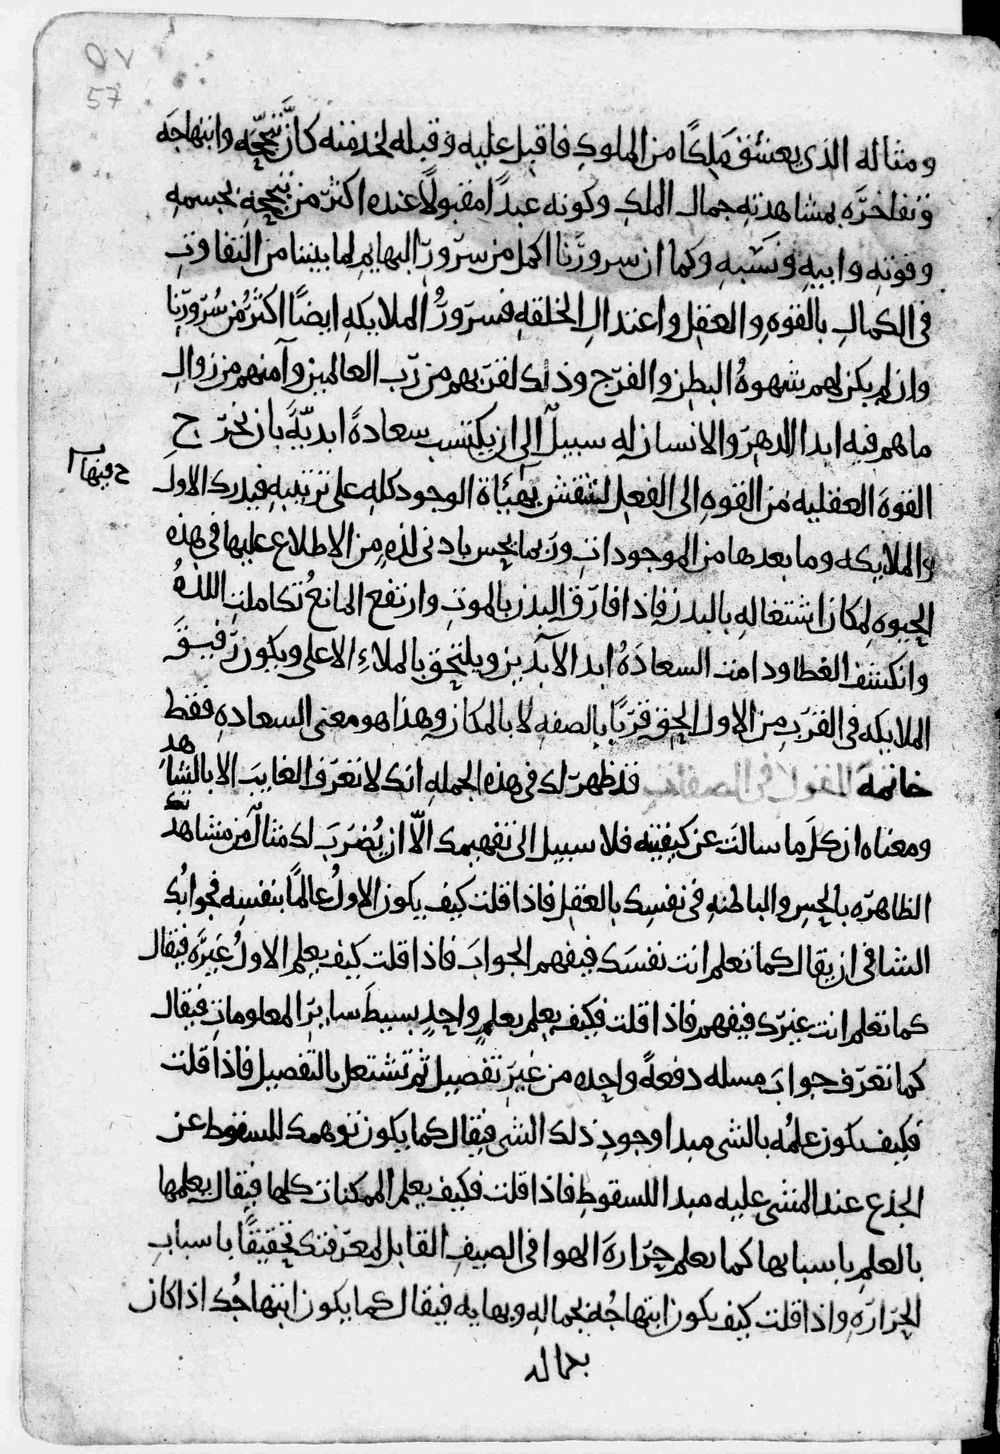 ٥٧
57
ومثاله الذى يعشق ملكًا من الملوك فاقبل عليه وقبله لخدمته كان تبجّحه وابتهاجَه
وتفاخرّه بمشاهدته جمال الملك وكونه عبدًا مقبولاً عنده اكثر من تبجحهِ بجسمهِ
وقوتهِ وابيهِ ونسَبهِ وكما ان سرورَنا اكمل من سرورّ البهايم لما بيننا من التفاوت
فى الكمال بالقوه والعقل واعتدال الخلقه فسرورُ الملايكه ايضًا اكثرُ من سُرورِنا
وان لم يكن لهم شهوهُ البطن والفرج وذلك لقربهم من ربّ العالمين وآمنهم من زوال
ما هم فيه ابد الدهر والانسان له سبيلٌ الى ان يكتسب سعادةً ابديّةً بان تخرج
القوهَ العقليه من القوهِ الى الفعل لتنتقش بهيئاة الوجود كله على ترتيبهِ فيدرك الاول
والملايكه وما بعدها من الموجودات وربما يحس بادنى لذهٍ من الاطلاع عليها فى هذه
الحيوه لمكان اشتغاله بالبدن فاذا فارق البدن بالموت وارتفع المانعُ تكاملت اللذهُ
وانكشف الغطا ودامت السعادَهُ ابد الآبدين ويلتحق بالملاءِ الاعلى ويكون رفيقَ
الملايكه فى القرب من الاول الحق قربًا بالصفه لا بالمكان وهذا هو معنى السعاده فقط
خاتمة القول فى الصفات قد ظهر لك فى هذه الجمله انك لا تعرف الغايبَ الا بالشاهد
ومعناه ان كلَ ما سالتَ عن كيفيته فلا سبيل الى تفهيمك الاّ ان يُضرَبَ لك مثالٌ من مشاهدتك
الظاهرّه بالحِس والباطنهِ فى نفسِك بالعقل فاذا قلت كيف يكون الاولُ عالمًا بنفسِه فجوابُك
الشافى ان يقال كما تعلم انت نفسَك فيفهم الجوابَ فاذا قلت كيف يعلم الاولُ غيرَه فيقال
كما تعلم انت غيرَك فيفهم فاذا قلت فكيف يعلم بعلمٍ واحدٍ بسيط سايرَ المعلومات فيقال
كما تعرف جوابَ مسله دفعةً واحده من غيرِ تفصيل ثم تشتعل بالتفصيل فاذا قلت
فكيف يكون علمُه بالشى مبدا وجودِ ذلك الشى فيقال كما يكون توهمك للسقوط عن
الجذع عند المشى عليه مبدا للسقوط فاذا قلت فكيف يعلم الممكنات كلها فيقال يعلمها
بالعلم باسبابها كما تعلم حرّارةَ الهوا فى الصيفِ القابل لمعرفتك تحقيقًا باسبابِ
الحرّارّه واذا قلت كيف يكون ابتهاجُه بجماله وبهايه فيقال كما يكون ابتهاجُك اذا كان
بحمالك